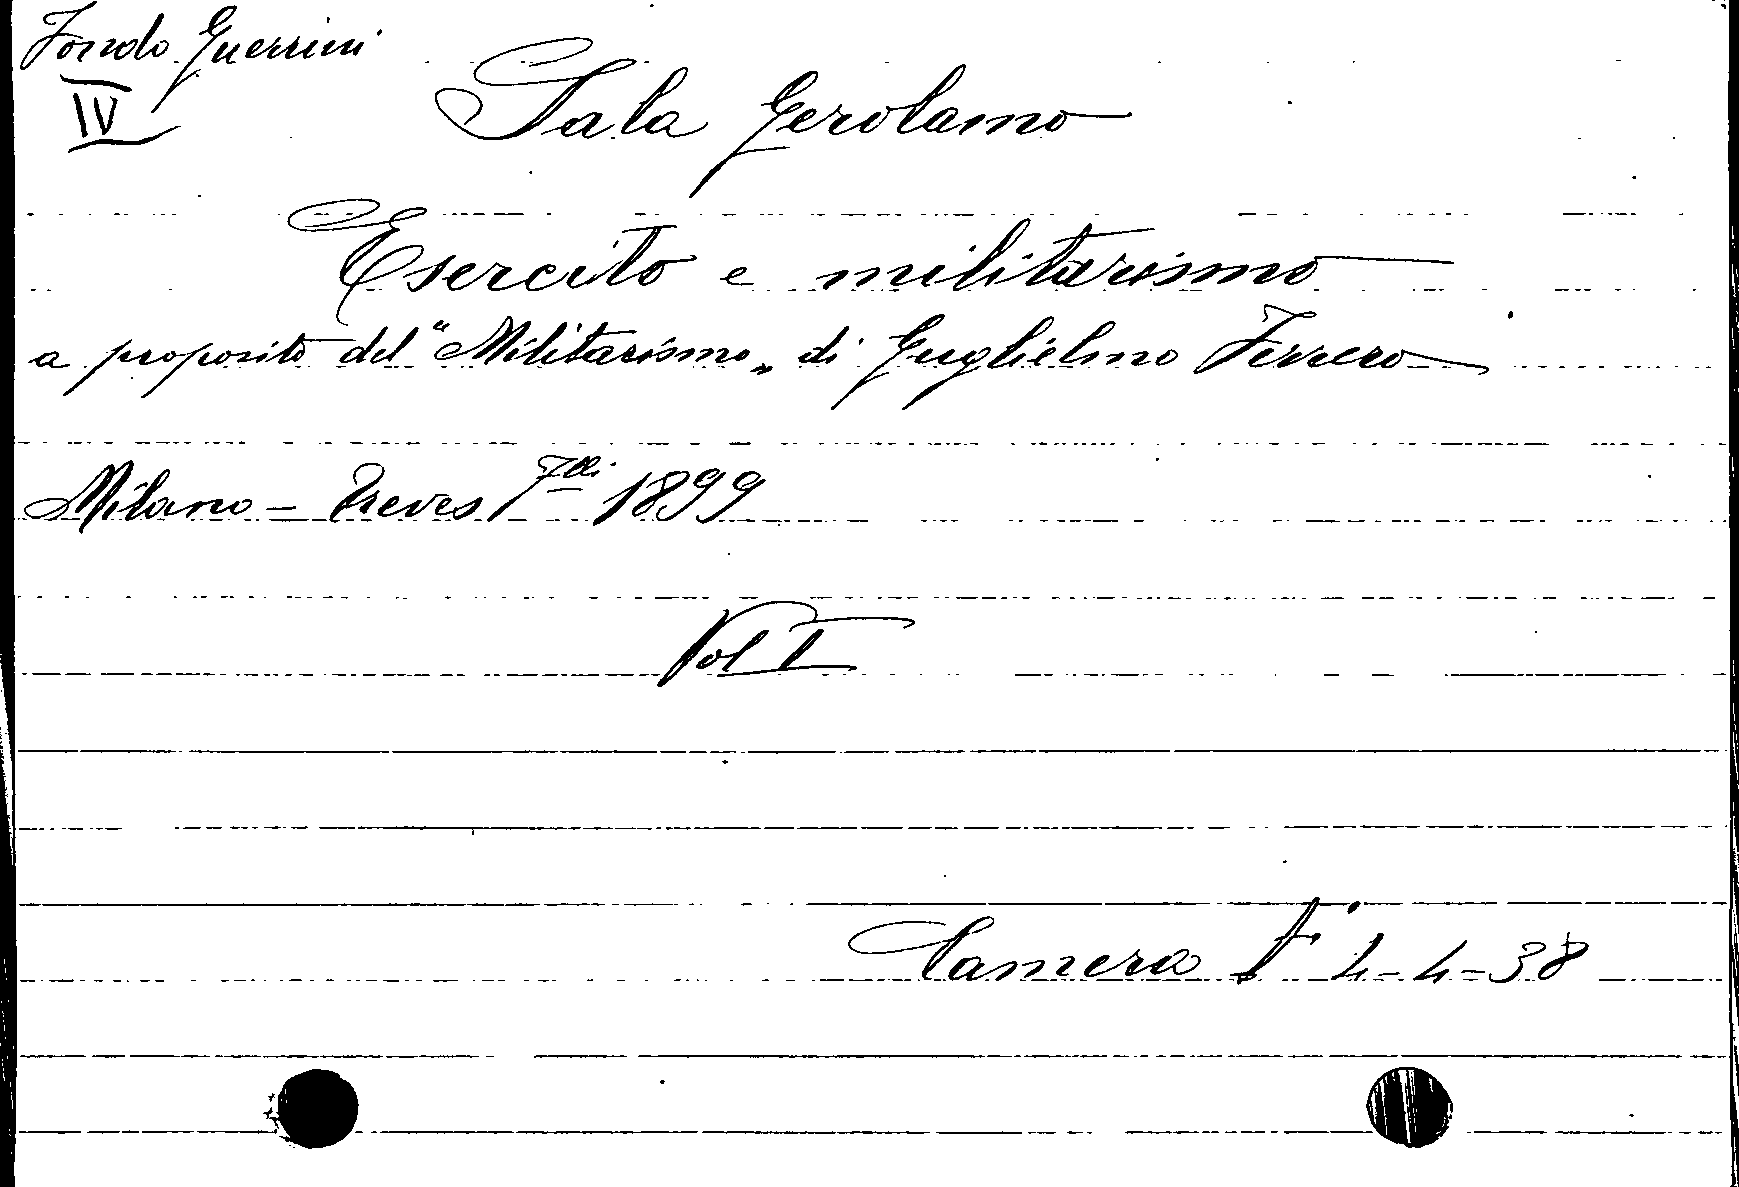 Fondo Guerrini
IV
Sala Gerolamo
Esercito e militarismo
a proposito del "Militarismo„ di Guglielmo Ferrero
Milano - Treves F.lli 1899
Vol I
Camera F 4-4-38